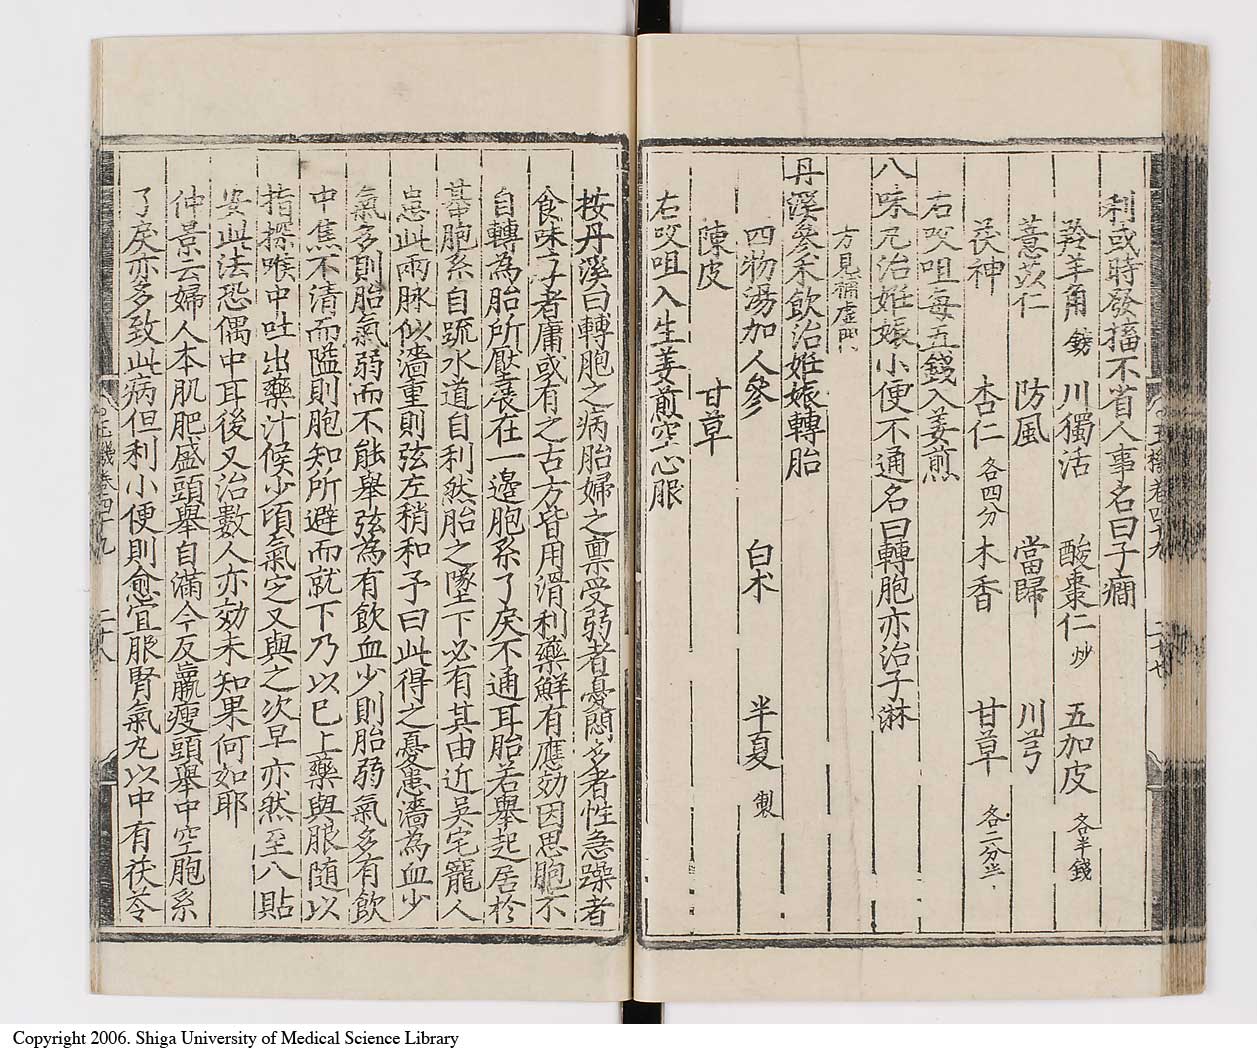 利或時發搐不省人事名曰子癇
羚羊角 錢 川獨活 酸棗仁 炒 五加皮 各半錢
薏苡仁 防風 當歸 川芎
茯神 杏仁 各四分 木香 甘草 各二分半
右㕮咀每五錢入姜煎
八味丸治姙娠小便不通名曰轉胞亦治子淋
方見補虛門
丹溪參朮飲治姙娠轉胎
四物湯加人參 白朮 半夏 製
陳皮 甘草
右㕮咀入生姜煎空心服
按丹溪曰轉胞之病胎婦之稟受弱者憂悶多者性急躁者
食味厚者庸或有之古方皆用滑利藥鮮有應効因思胞不
自轉為胎所壓展在一邊胞系了戾不通耳胎若舉起居於
其中胞系自疏水道自利然胎之墜下必有其由近吳宅寵人
患此兩脉似濇重則弦左稍和予曰此得之憂患濇為血少
氣多則胎氣弱而不能舉弦為有飲血少則胎弱氣多有飲
中焦不清而隘則胞知所避而就下乃以巳上藥與服随以
指探喉中吐出藥汁候少頃氣定又與之次早亦然至八貼
安此法恐偶中耳後又治數人亦効未知果何如耶
仲景云婦人本肌肥盛頭舉自滿今反羸瘦頭舉中空胞系
了戾亦多致此病但利小便則愈宜服腎氣丸以中有茯苓
玉機卷四十九 二十八
Copyright 2006. Shiga University of Medical Science Library